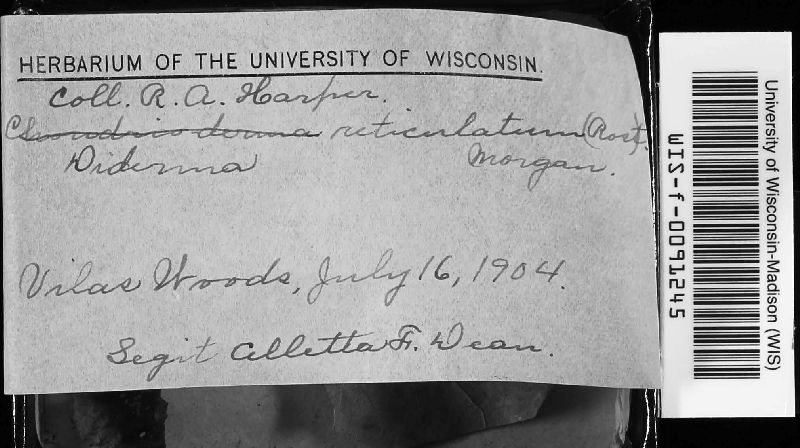 HERBARIUM OF THE UNIVERSITY OF WISCONSIN.
Coll. R. A. Harper.
Chondrioderma reticulatum (Rost).
Diderma Morgan.
Vilas Woods, July 16, 1904.
Legit Alletta F. Dean.
University of Wisconsin-Madison (WIS)
WIS-f-0091245